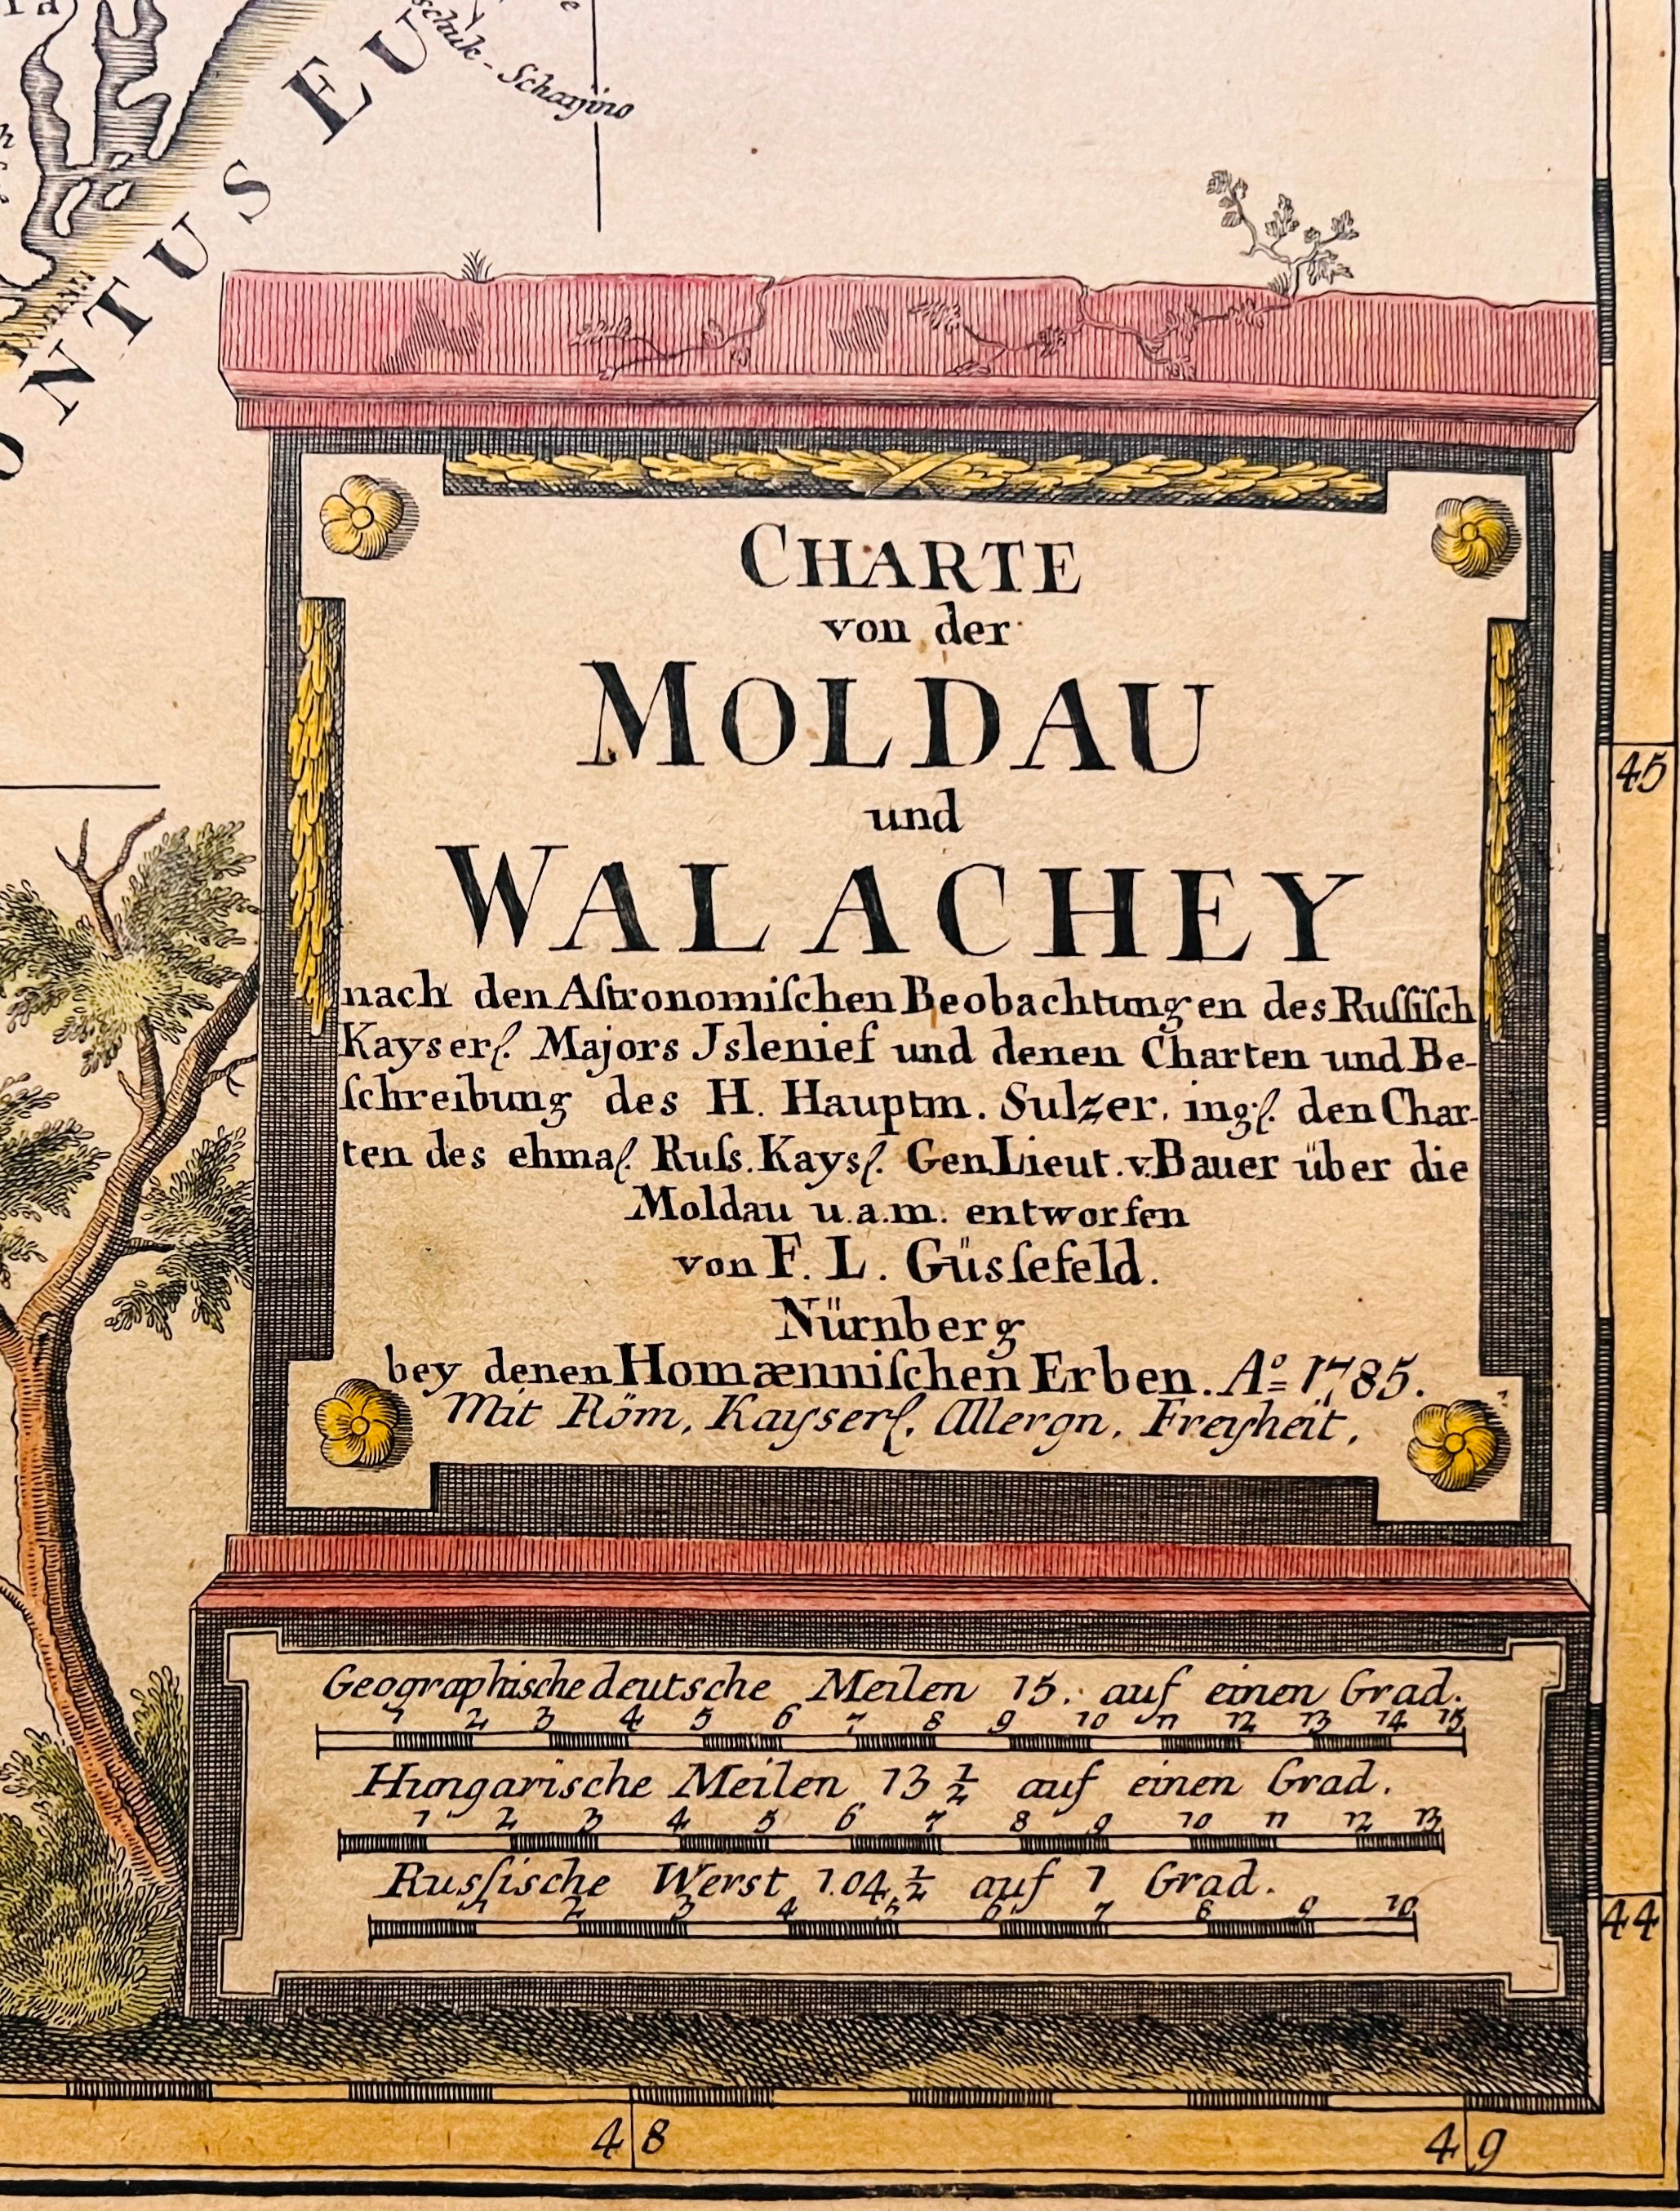 PONTUS EU
schuk-Scharjino
CHARTE
von der
MOLDAU
und
WALACHEY
nach den Aſtronomiſchen Beobachtungen des Ruſſiſch
Kayserl. Majors Jslenief und denen Charten und Be-
ſchreibung des H. Hauptm. Sulzer. ingl. den Char-
ten des ehmal. Ruſs. Kaysl. GenLieut. v. Bauer über die
Moldau u.a.m. entworfen
von F. L. Güsſefeld.
Nürnberg
bey denen Homænniſchen Erben. Aº 1785.
Mit Röm. Kayserl. Allergn. Freyheit.
Geographische deutsche Meilen 15. auf einen Grad.
1 2 3 4 5 6 7 8 9 10 11 12 13 14 15
Hungarische Meilen 13 1/2 auf einen Grad.
1 2 3 4 5 6 7 8 9 10 11 12 13
Rusſische Werst 104 1/2 auf 1 Grad.
1 2 3 4 5 6 7 8 9 10
45
44
48
49